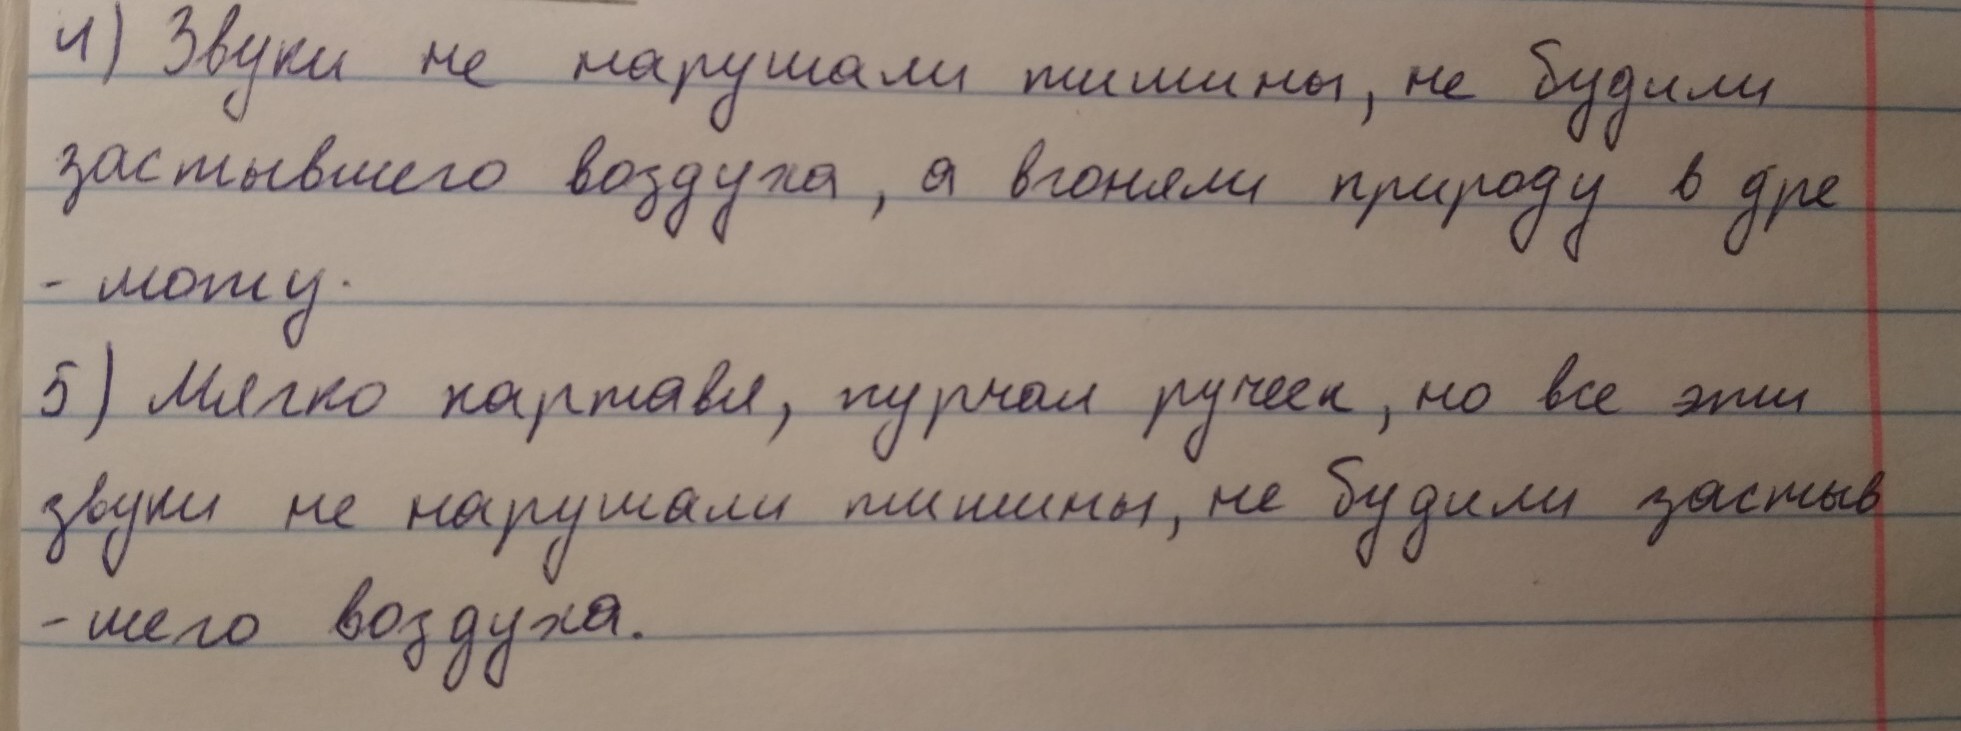 4) Звуки не нарушали тишины, не будили
застывшего воздуха, а вгоняли природу в дре
- моту.
5) Мягко картавя, журчал ручеек, но все эти
звуки не нарушали тишины, не будили застыв
- шего воздуха.